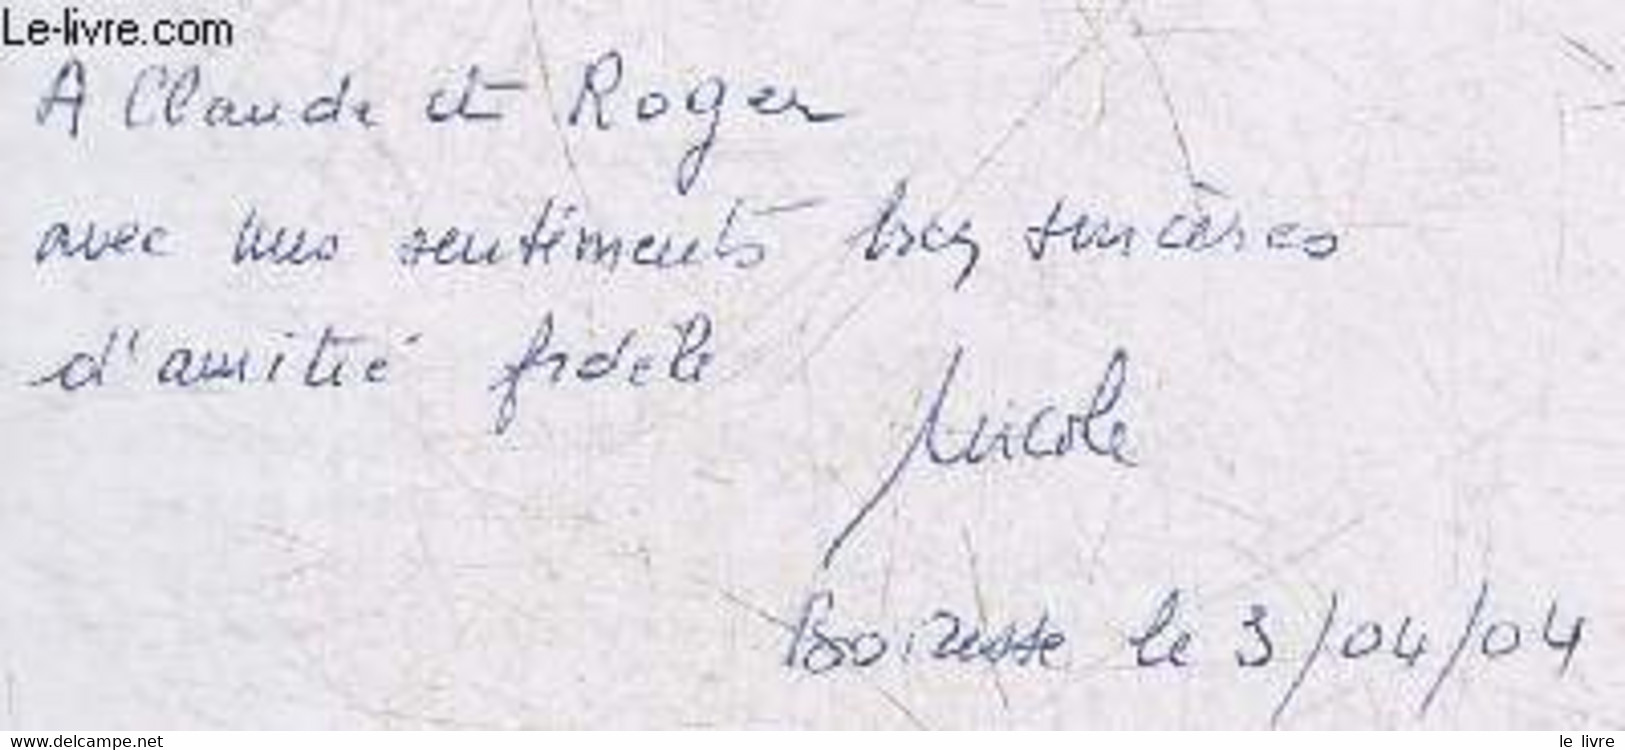 Le-livre.com
A Claude et Roger
avec mes sentiments très sincères
d'amitié fidèle
Nicole
le 3/04/04
www.delcampe.net
le livre